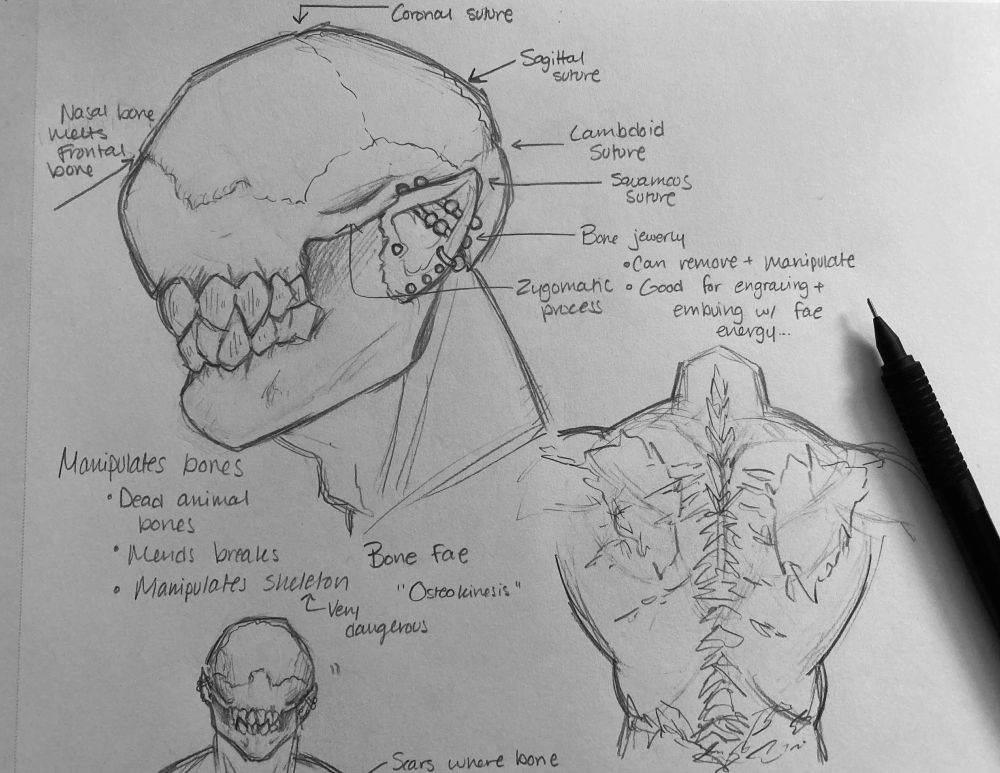 Coronal suture
Sagittal
suture
Nasal bone
melts
Frontal
bone
Lambdoid
suture
Squamous
suture
Bone jewerly
• Can remove + manipulate
• Good for engraving +
embuing w/ fae
energy...
Zygomatic
process
Manipulates bones
• Dead animal
bones
• Mends breaks
• Manipulates skeleton
Very
dangerous
Bone Fae
"Osteokinesis"
"
Scars where bone